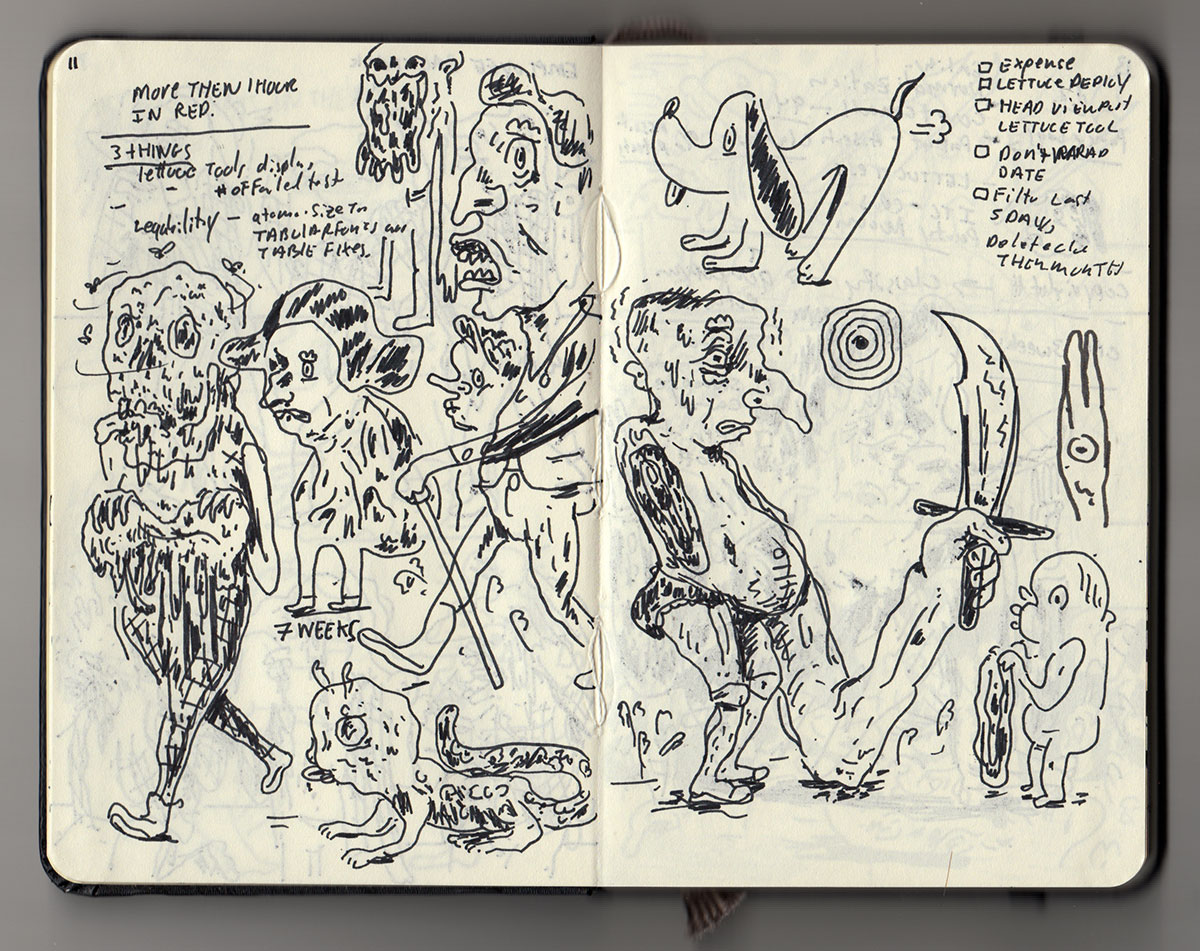 11
MORE THEN 1 HOUR
IN RED.
3 THINGS
lettuce Tools display
# of Failed test
legibility – atomic size to
TABULAR FONTS
TABLE FIXES.
7 WEEKS
Expense
LETTUCE DEPLOY
HEAD VIEW
LETTUCE TOOL
Don't
DATE
Filter Last
5 DAYS